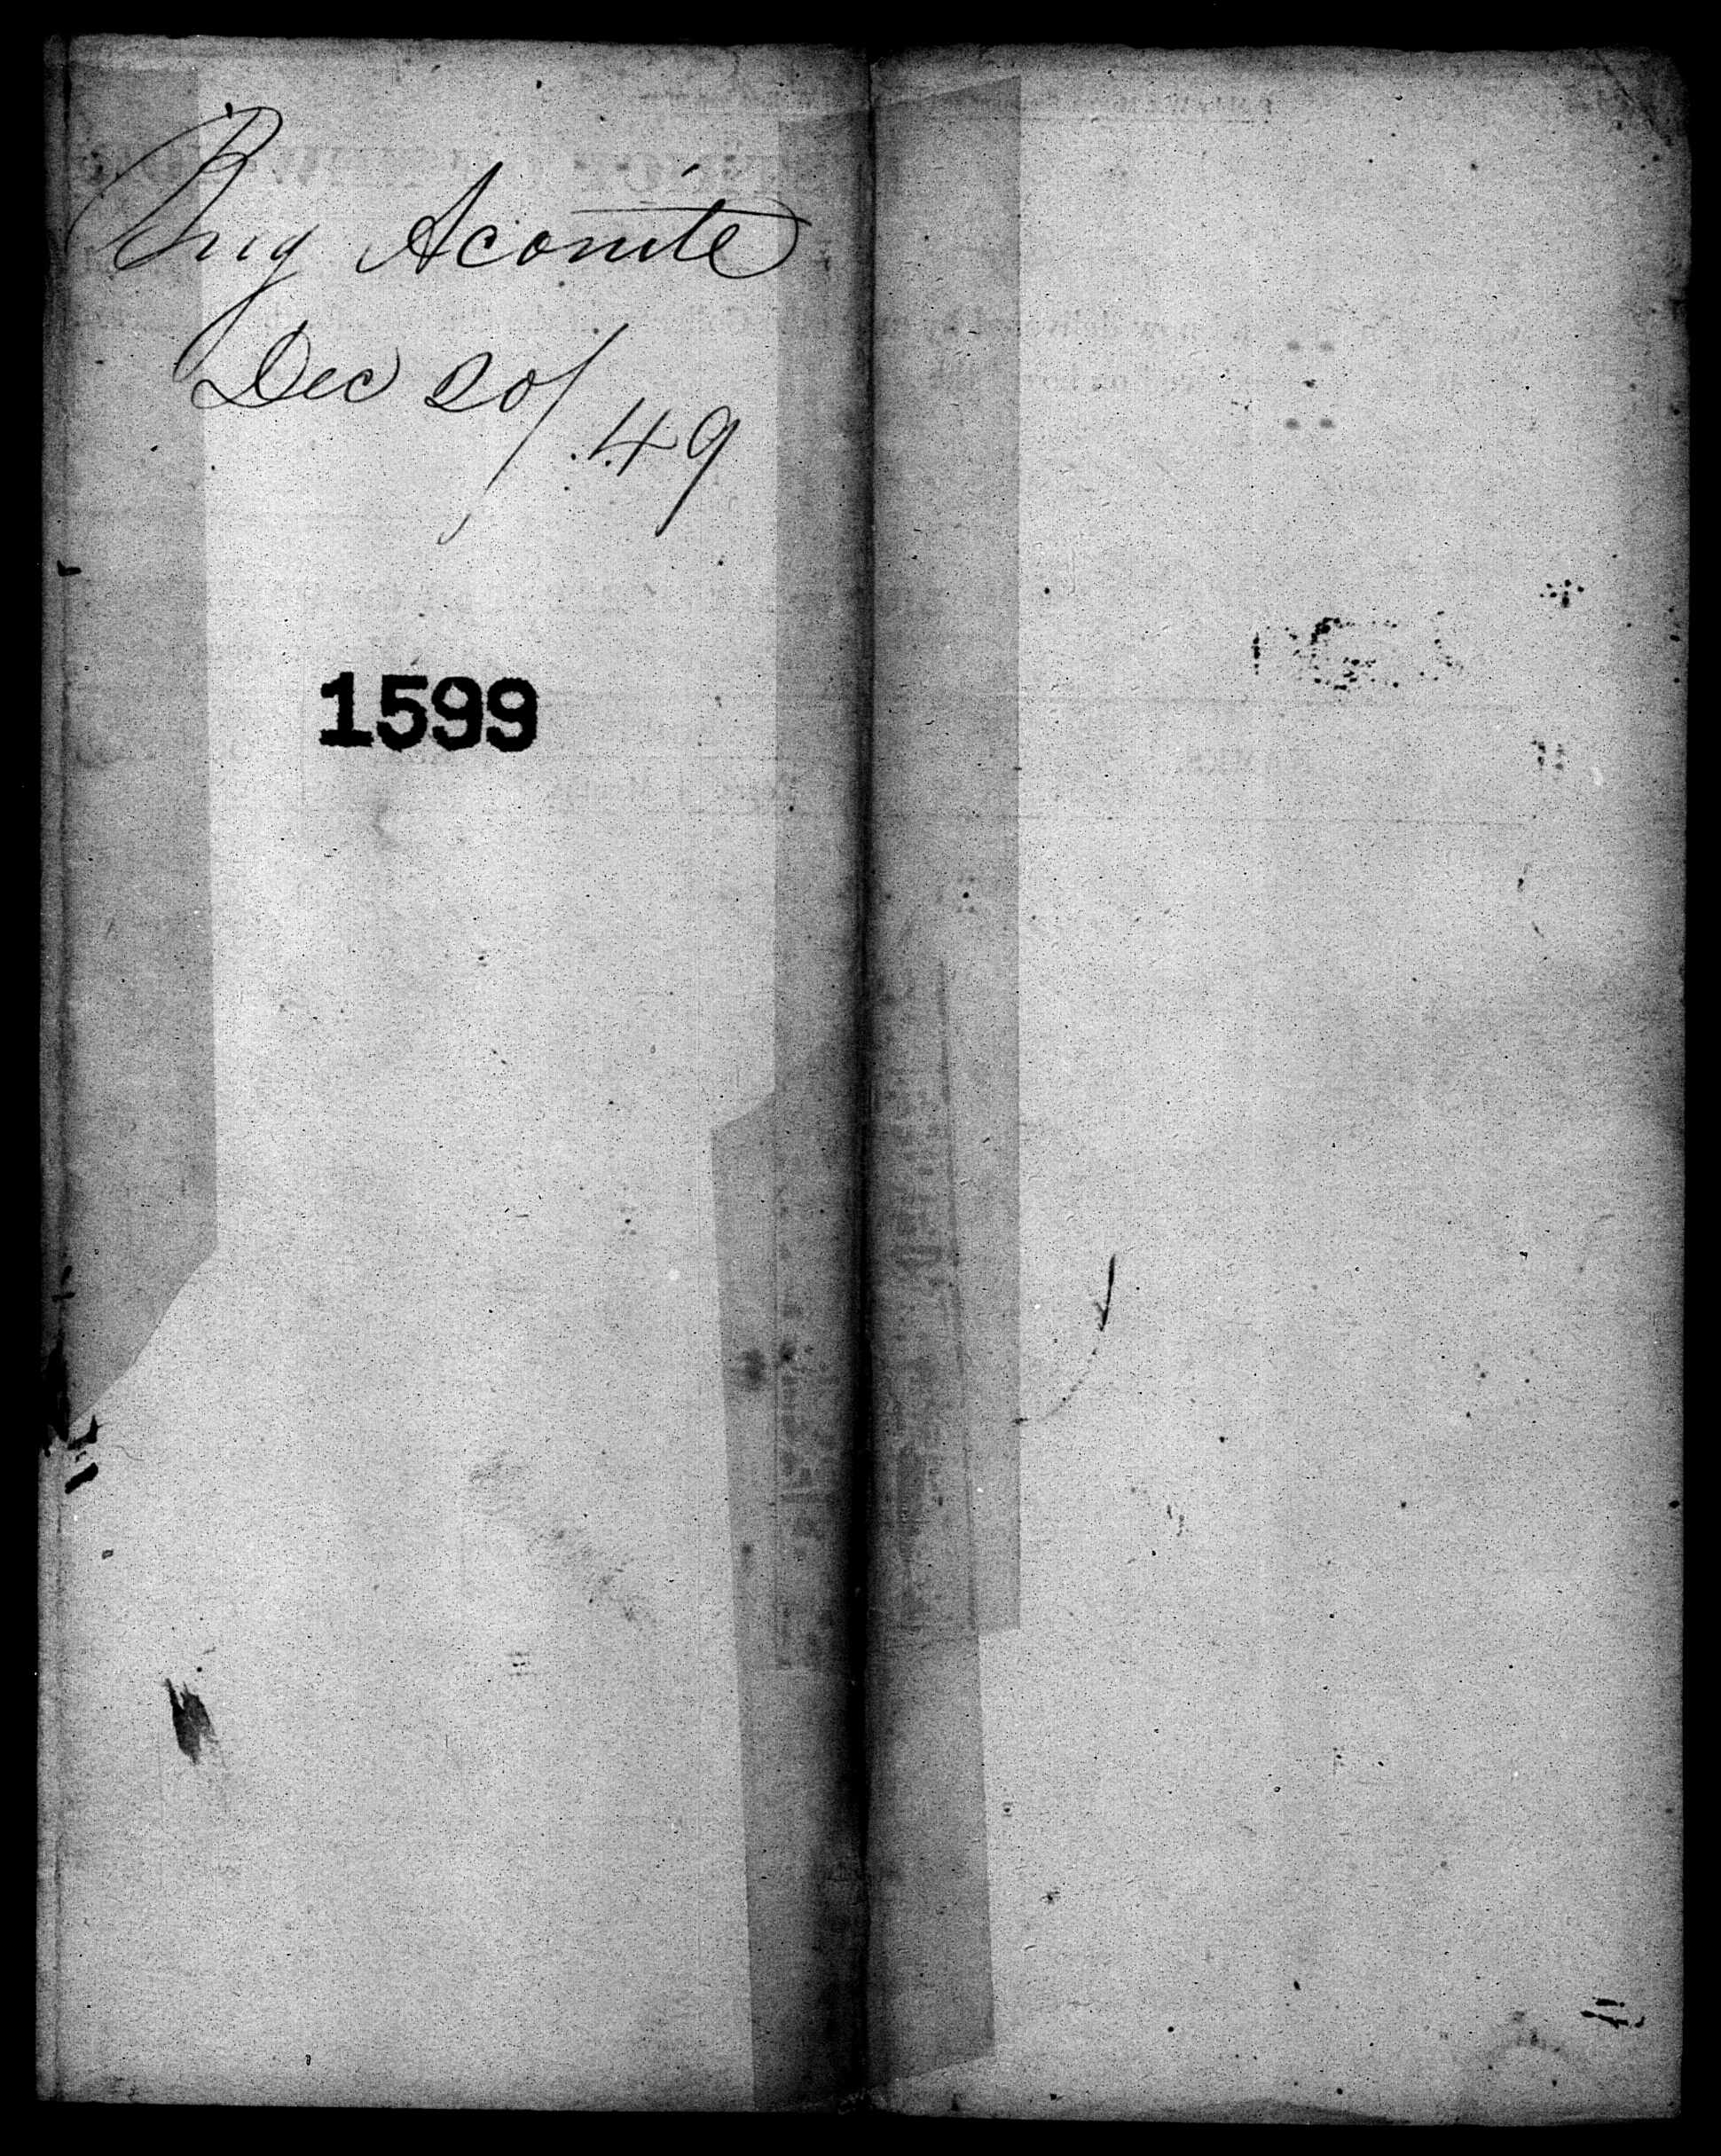 Brig Aconite
Dec 20/49
1599